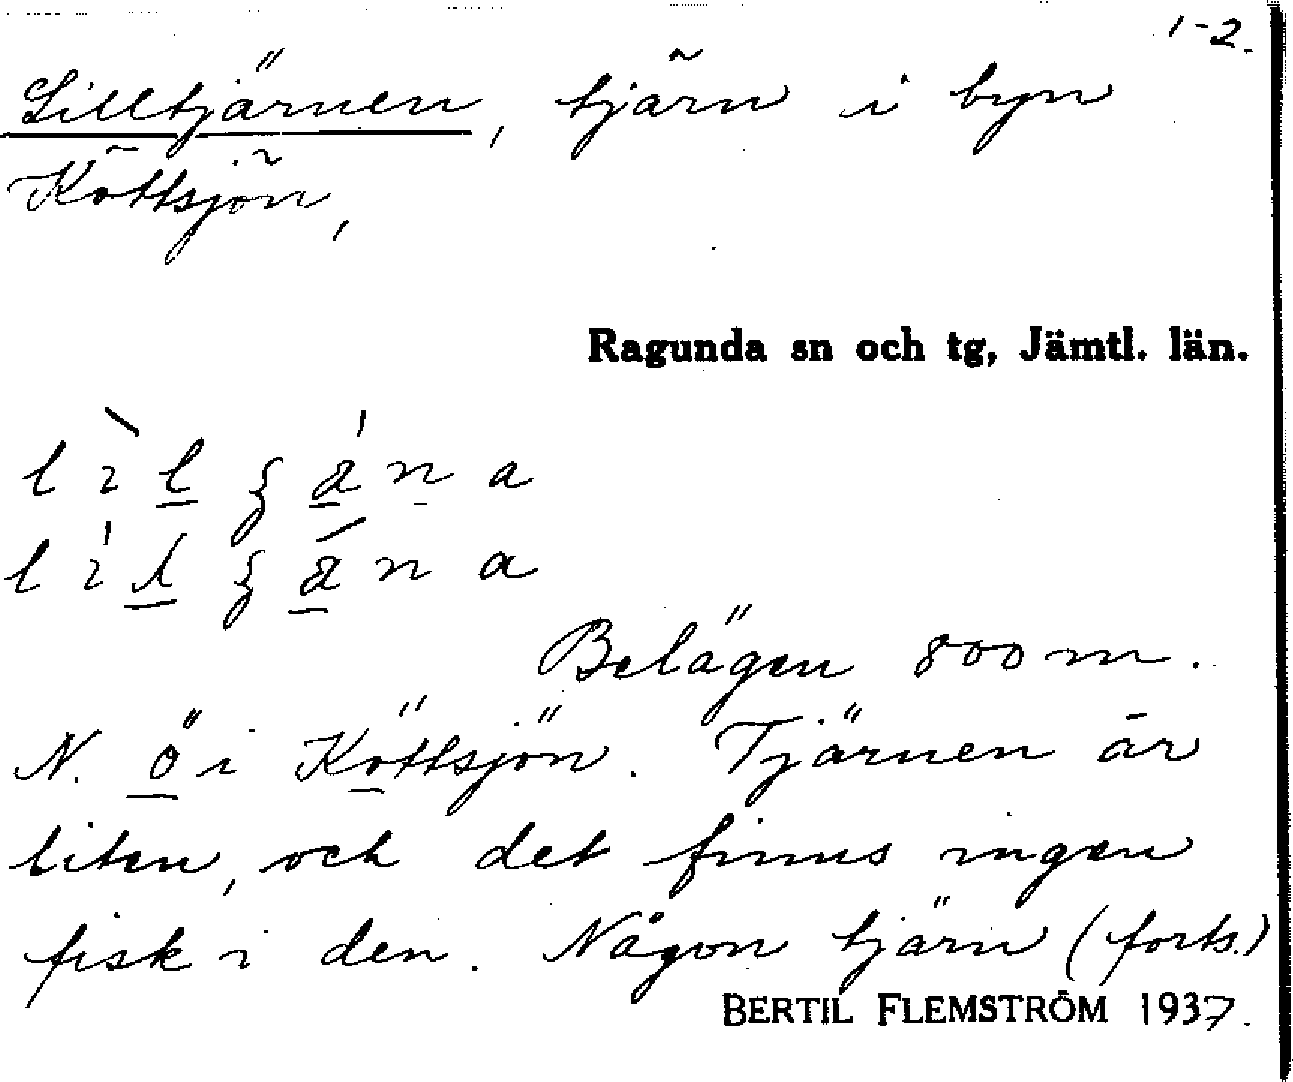 1-2.
Lilltjärnen, tjärn i byn
Köttsjön,
Ragunda sn och tg, Jämtl. län.
Belägen 800 m.
N. ö i Köttsjön. Tjärnen är
liten, och det finns ingen
fisk i den. Någon tjärn (forts.)
BERTIL FLEMSTRÖM 1937.